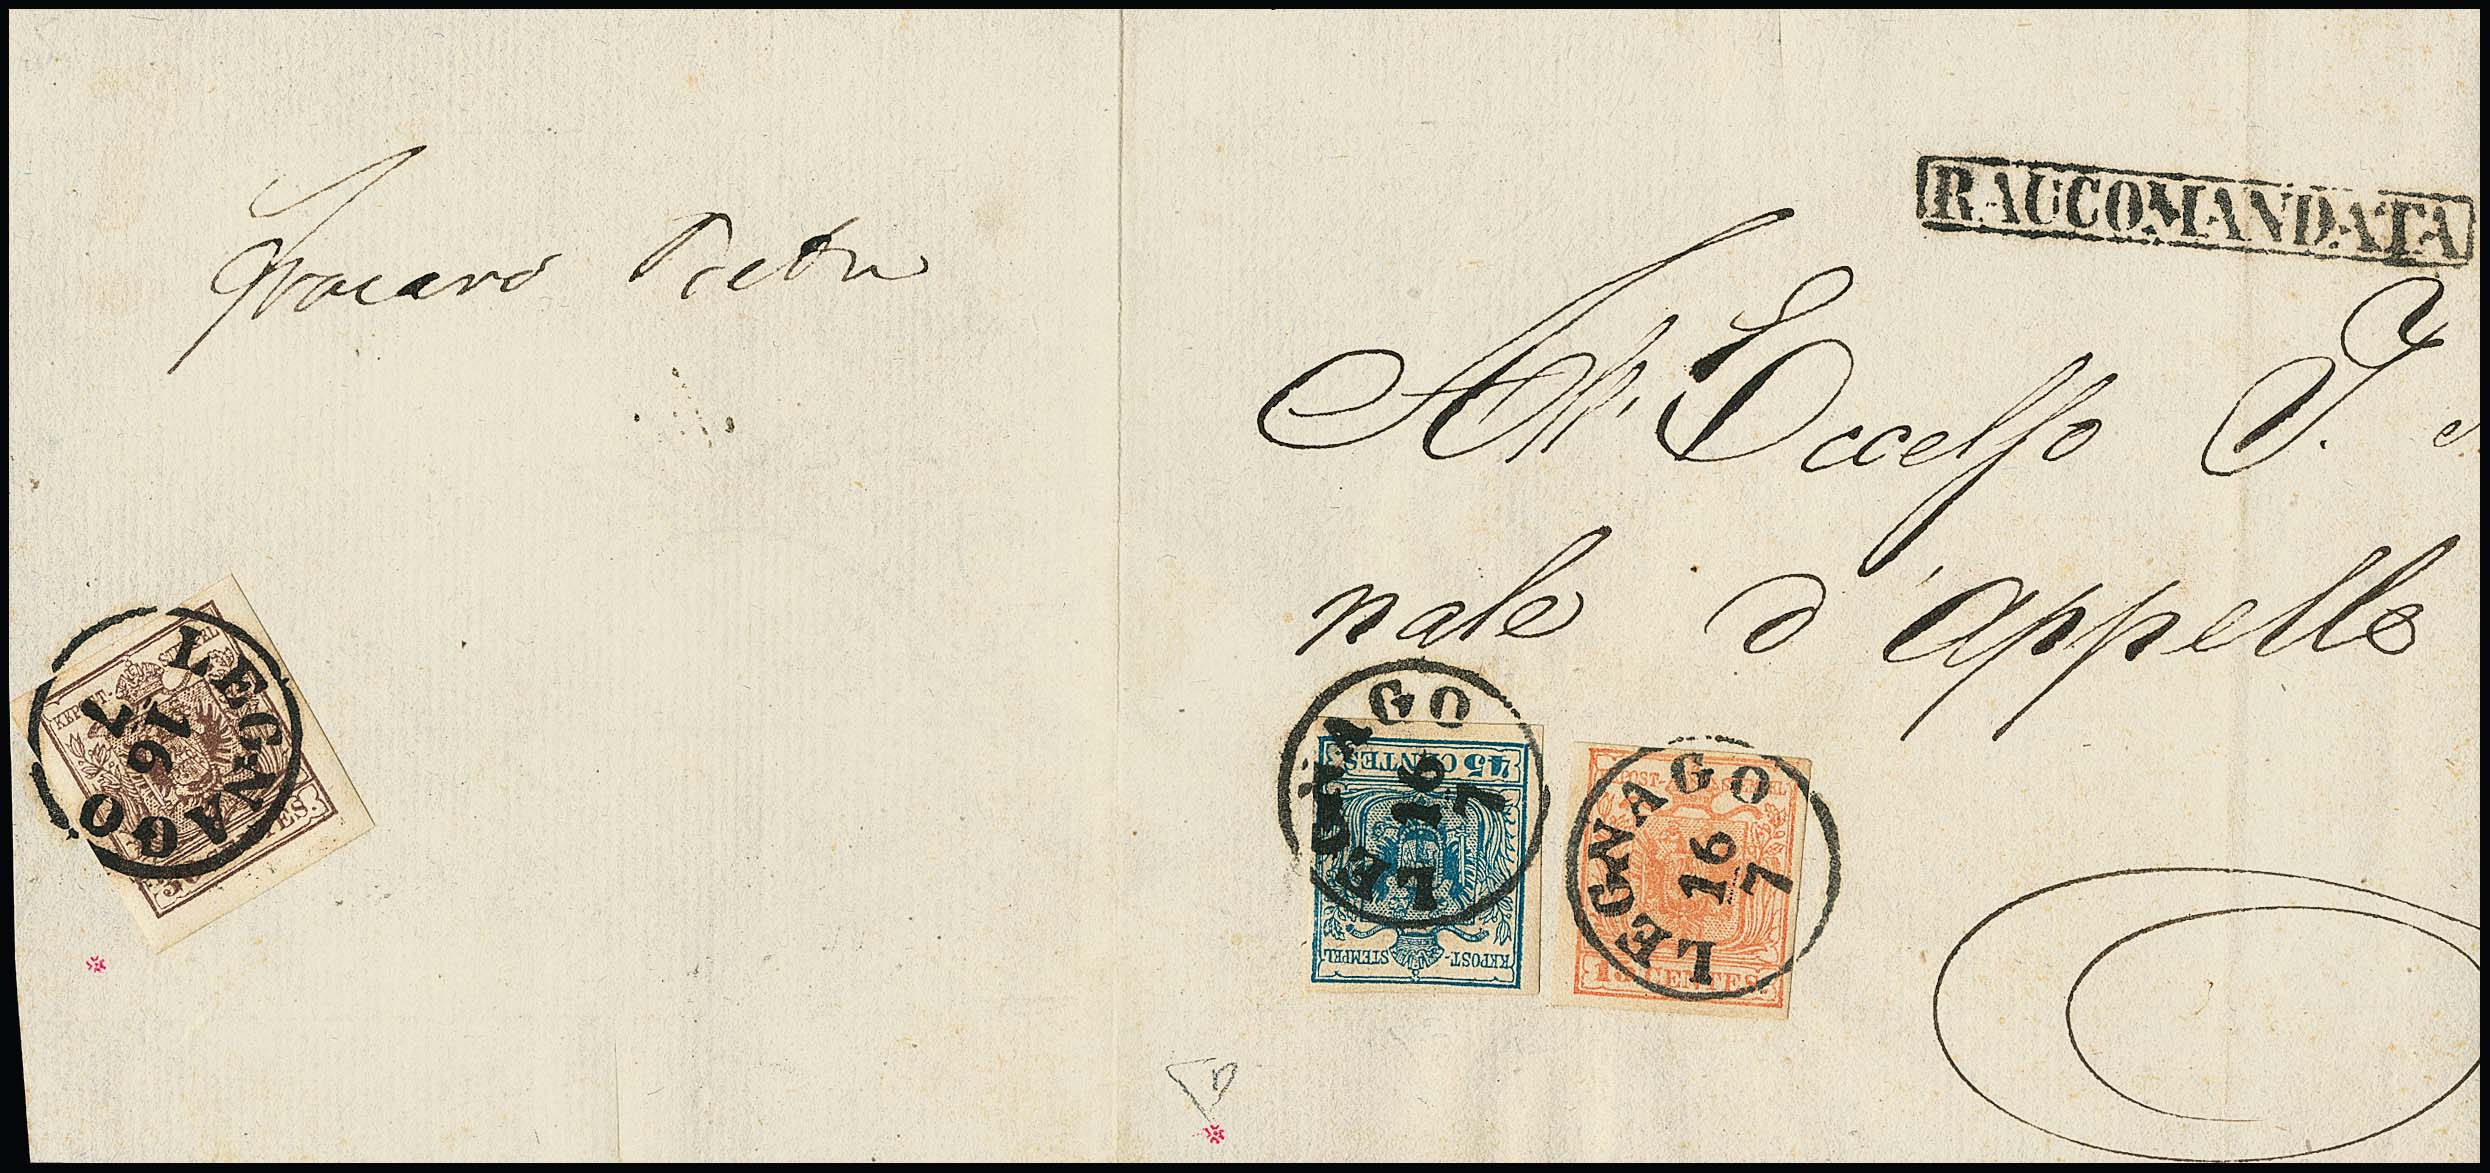 RACCOMANDATA
All' Eccelso I.
nale d'Appello
LEGNAGO
16
7
KKPOST-STEMPEL
CENTES.
LEGNAGO
16
7
45 CENTES.
KKPOST-STEMPEL
LEGNAGO
16
7
KKPOST-STEMPEL
15 CENTES.